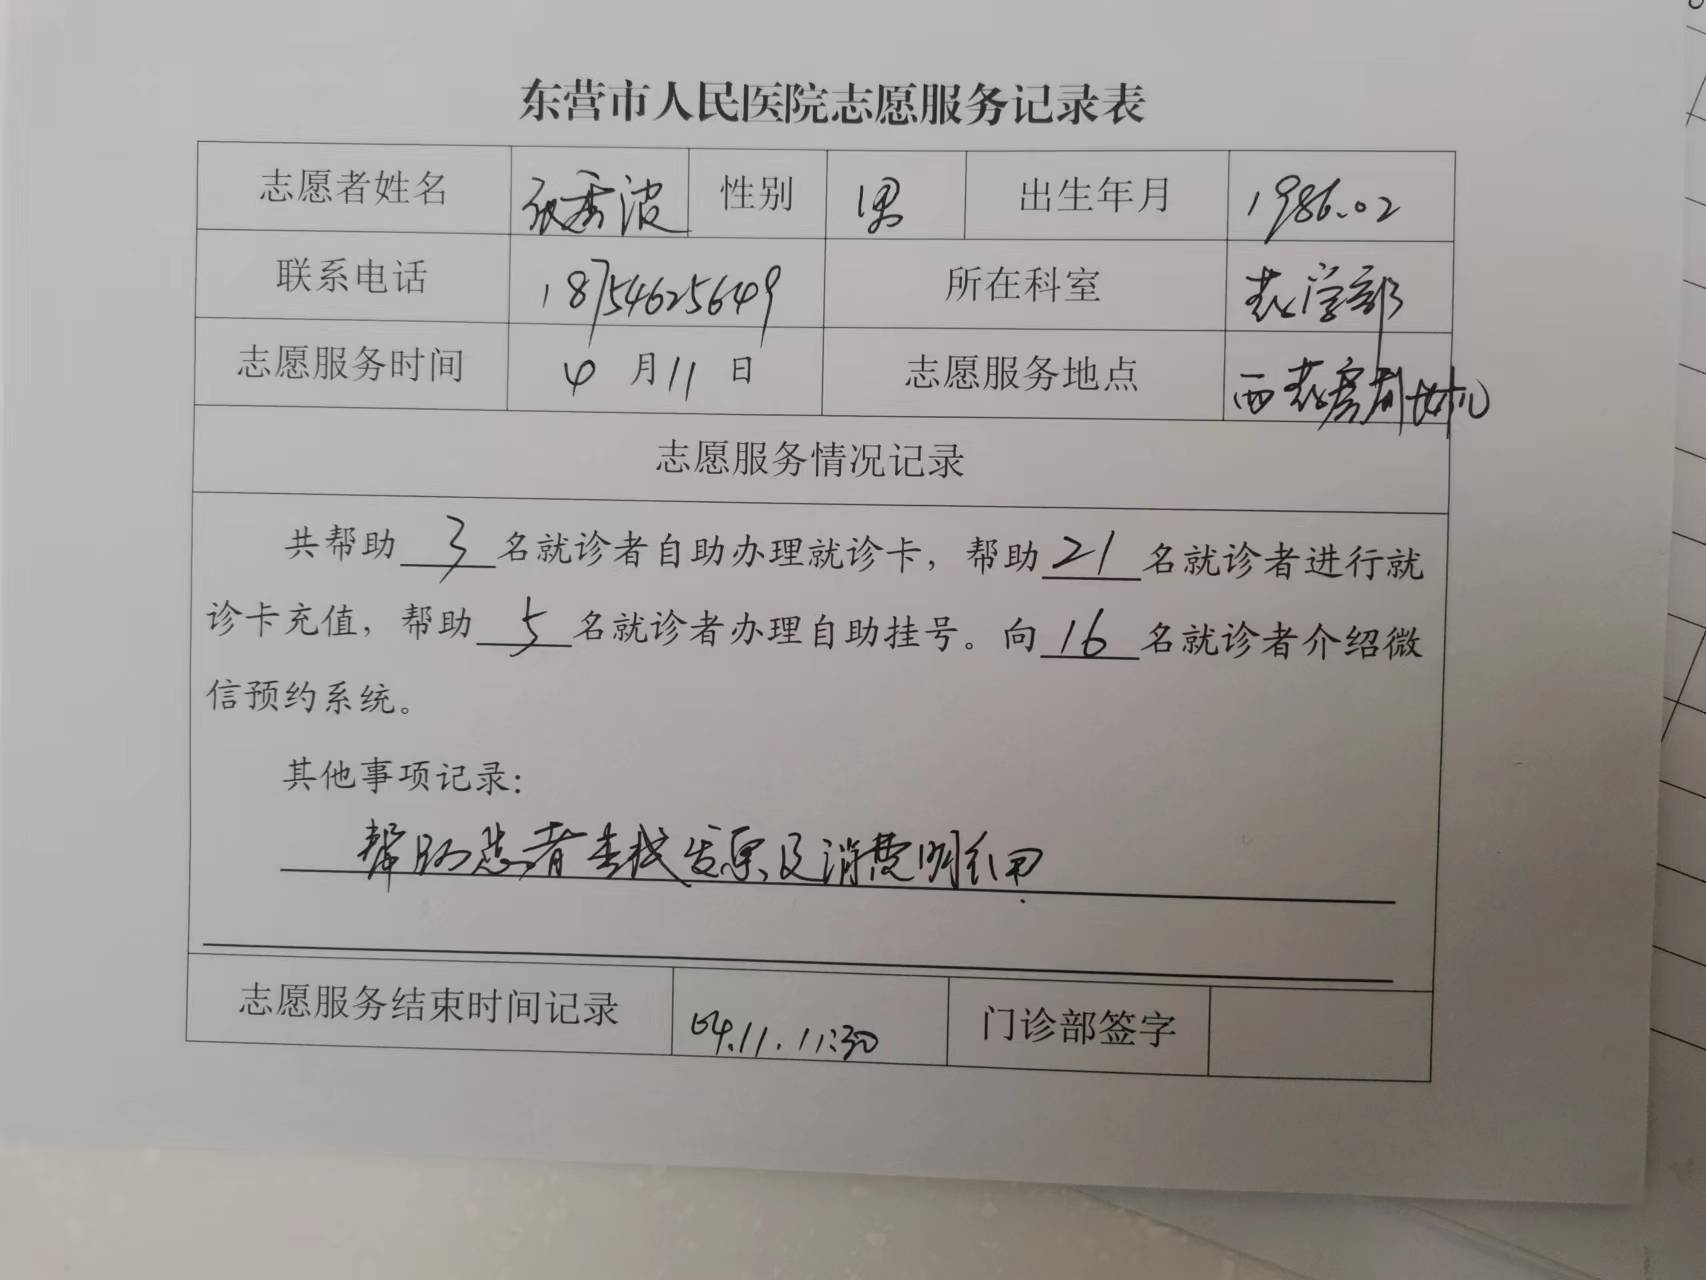 东营市人民医院志愿服务记录表
志愿者姓名 张秀波 性别 男 出生年月 1986.02
联系电话 18754625649 所在科室 药学部
志愿服务时间 4月11日 志愿服务地点 西药房
志愿服务情况记录
共帮助3名就诊者自助办理就诊卡，帮助21名就诊者进行就
诊卡充值，帮助5名就诊者办理自助挂号。向16名就诊者介绍微
信预约系统。
其他事项记录：
帮助患者查找发票及消费明细.
志愿服务结束时间记录 04.11.11:30 门诊部签字